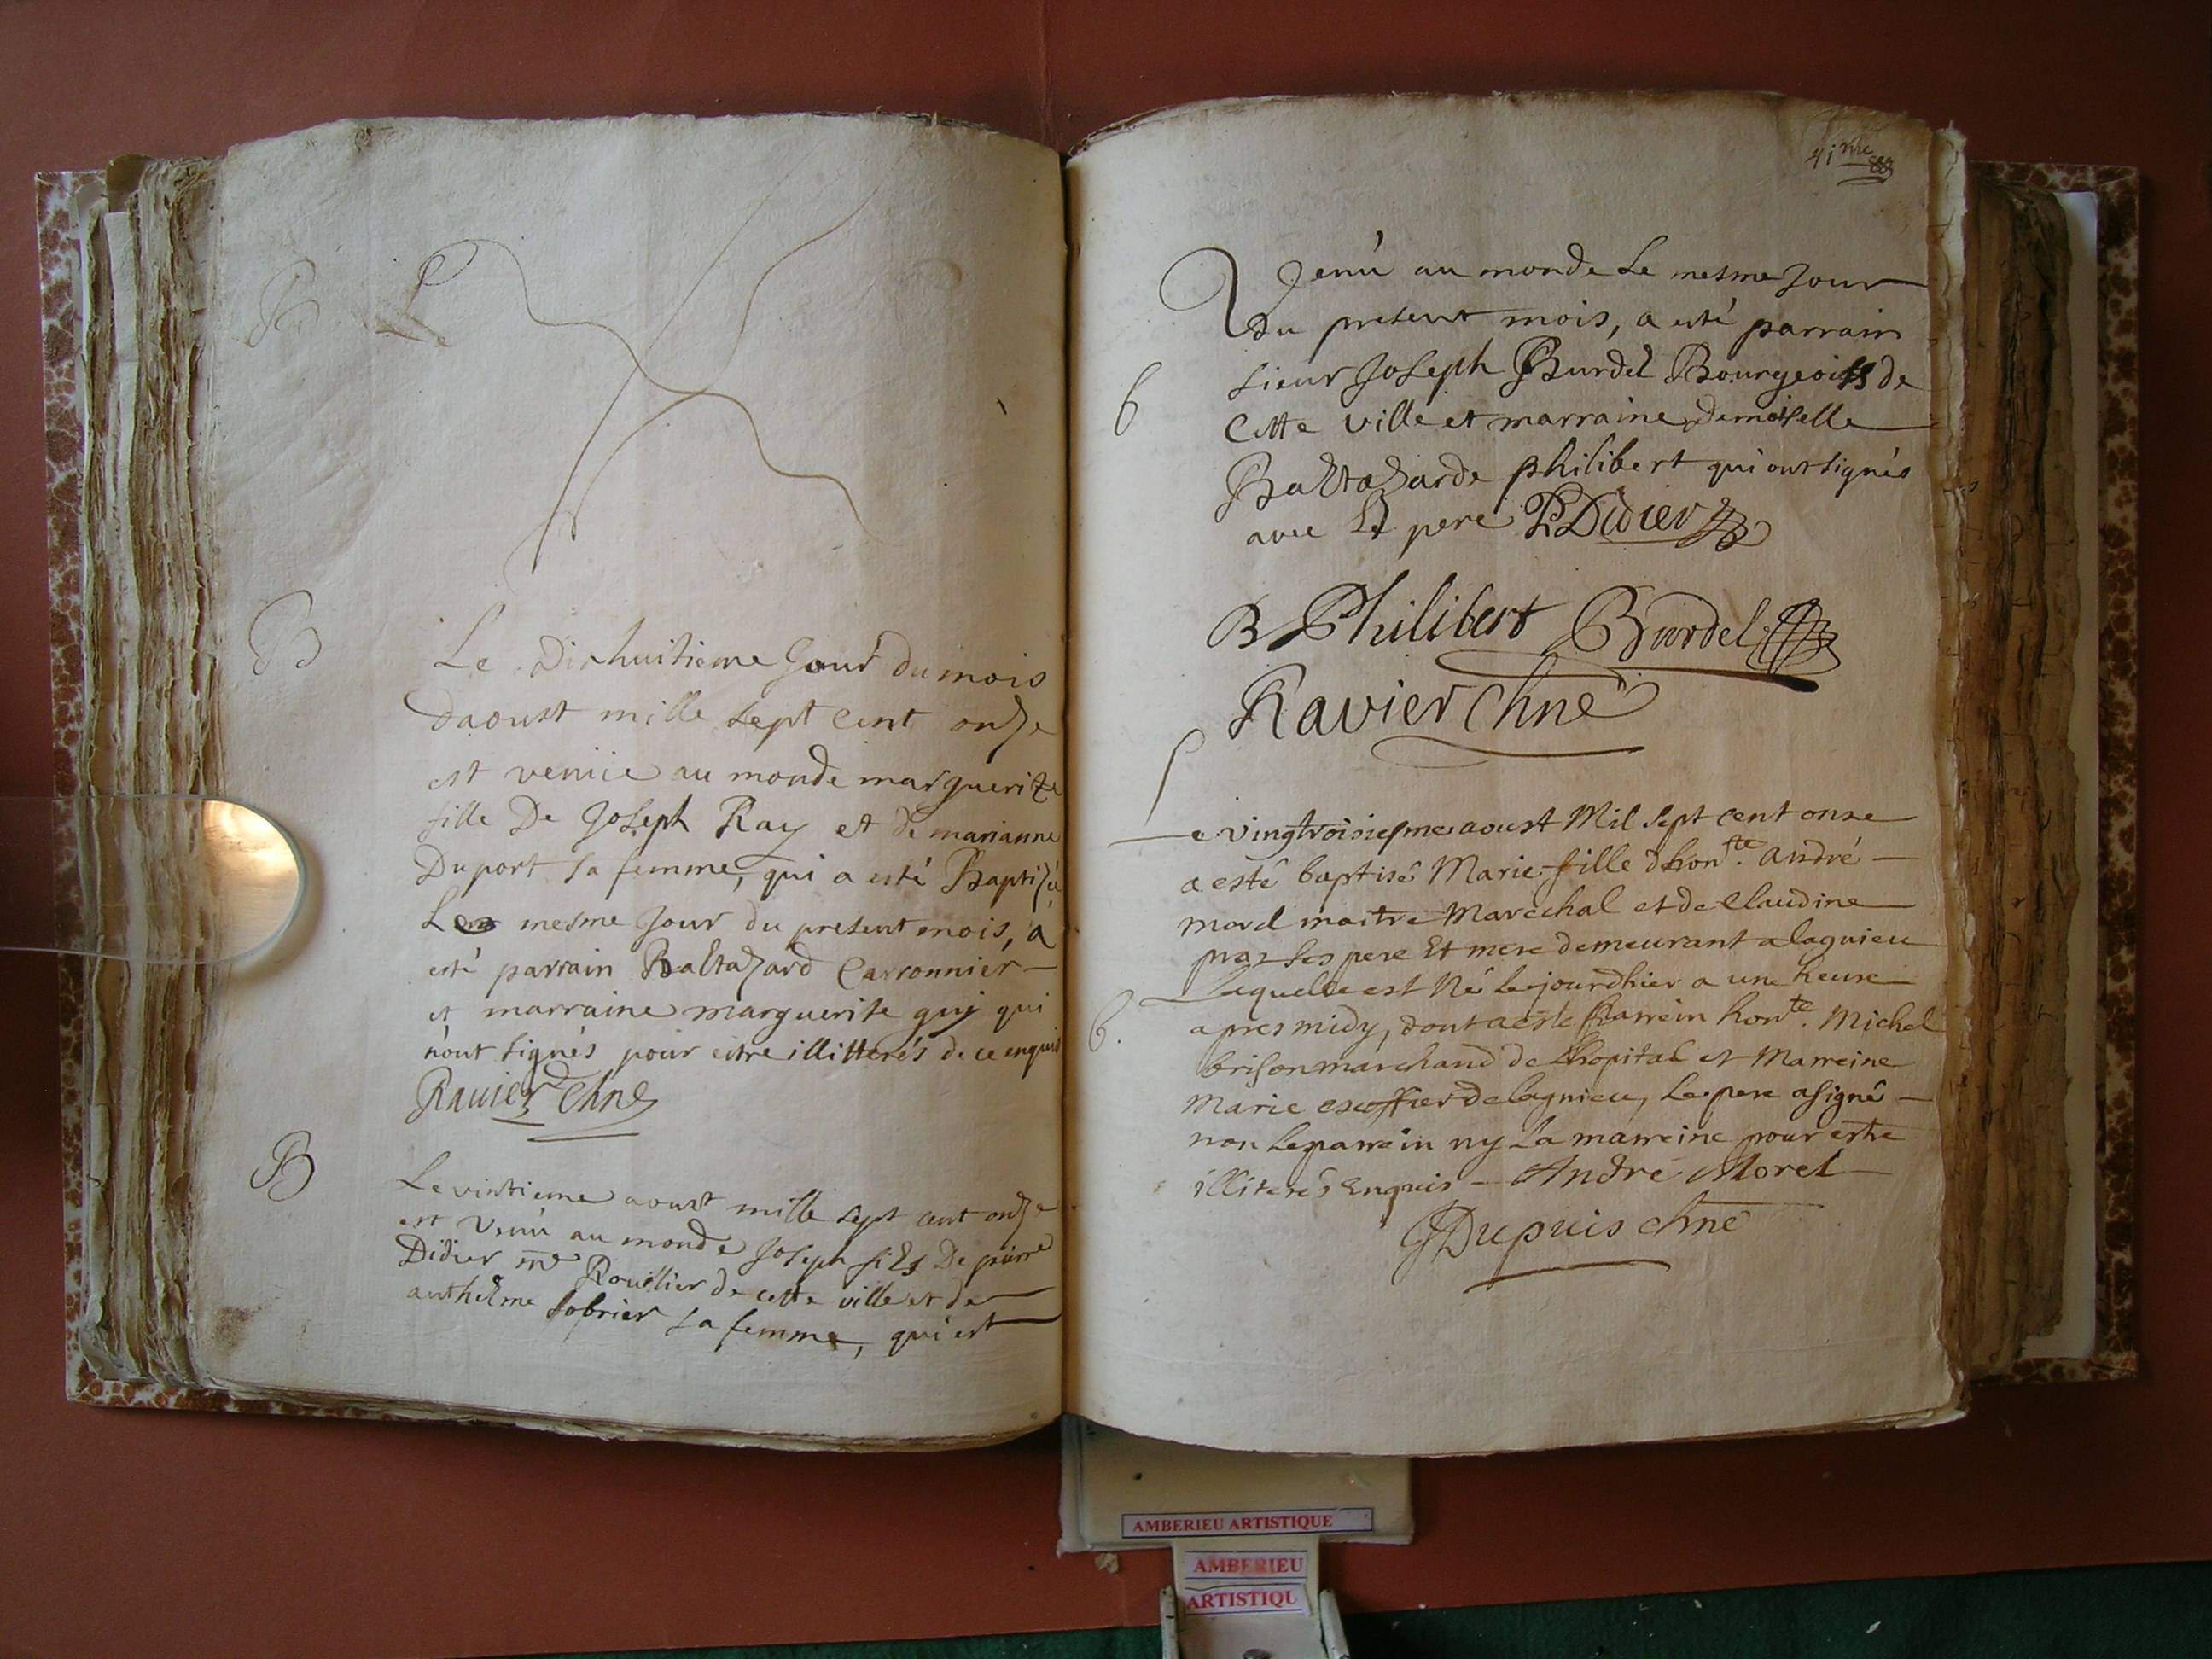 B
Le Dixhuitieme Jour du mois
daoust mille sept cent onze
est venüe au monde marguerite
fille De Joseph Ray et de marianne
Duport sa femme, qui a esté Baptizé
Le mesme Jour du present mois, a
esté parrain Baltazard Carronnier
et marraine marguerite guy qui
n'ont signés pour estre illitterés de ce enquis
Ravier Chne
B
Le vintieme aoust mille sept cent onze
est venù au monde Joseph fils De pierre
Didier me Rouillier de cette ville et de
anthelme sobrier sa femme, qui est
41me
Venù au monde Le mesme Jour
Du present mois, a esté parrain
sieur Joseph Burdel Bourgeois de
Cette ville et marraine Demoiselle
Baltazarde philibert qui ont signés
avec Le pere PDidier
B Philibert Burdel
Ravier Chne
b
Le vingtroisiesme aoust Mil sept cent onze
a esté baptisé Marie fille dhonste. André
morel maitre Marechal et de Claudine
pras ses pere Et mere demeurant a lagnieu
Laquelle est Né Le jourdhier a une heure
apres midy, dont a esté parrein honte. Michel
brison marchand de Lhopital et Marreine
Marie escoffier de lagnieu, Le pere a signé
non Le parrein ny La marreine pour estre
illiterés Enquis - André Morel
Dupuis chne
b.
AMBERIEU ARTISTIQUE
AMBERIEU
ARTISTIQU